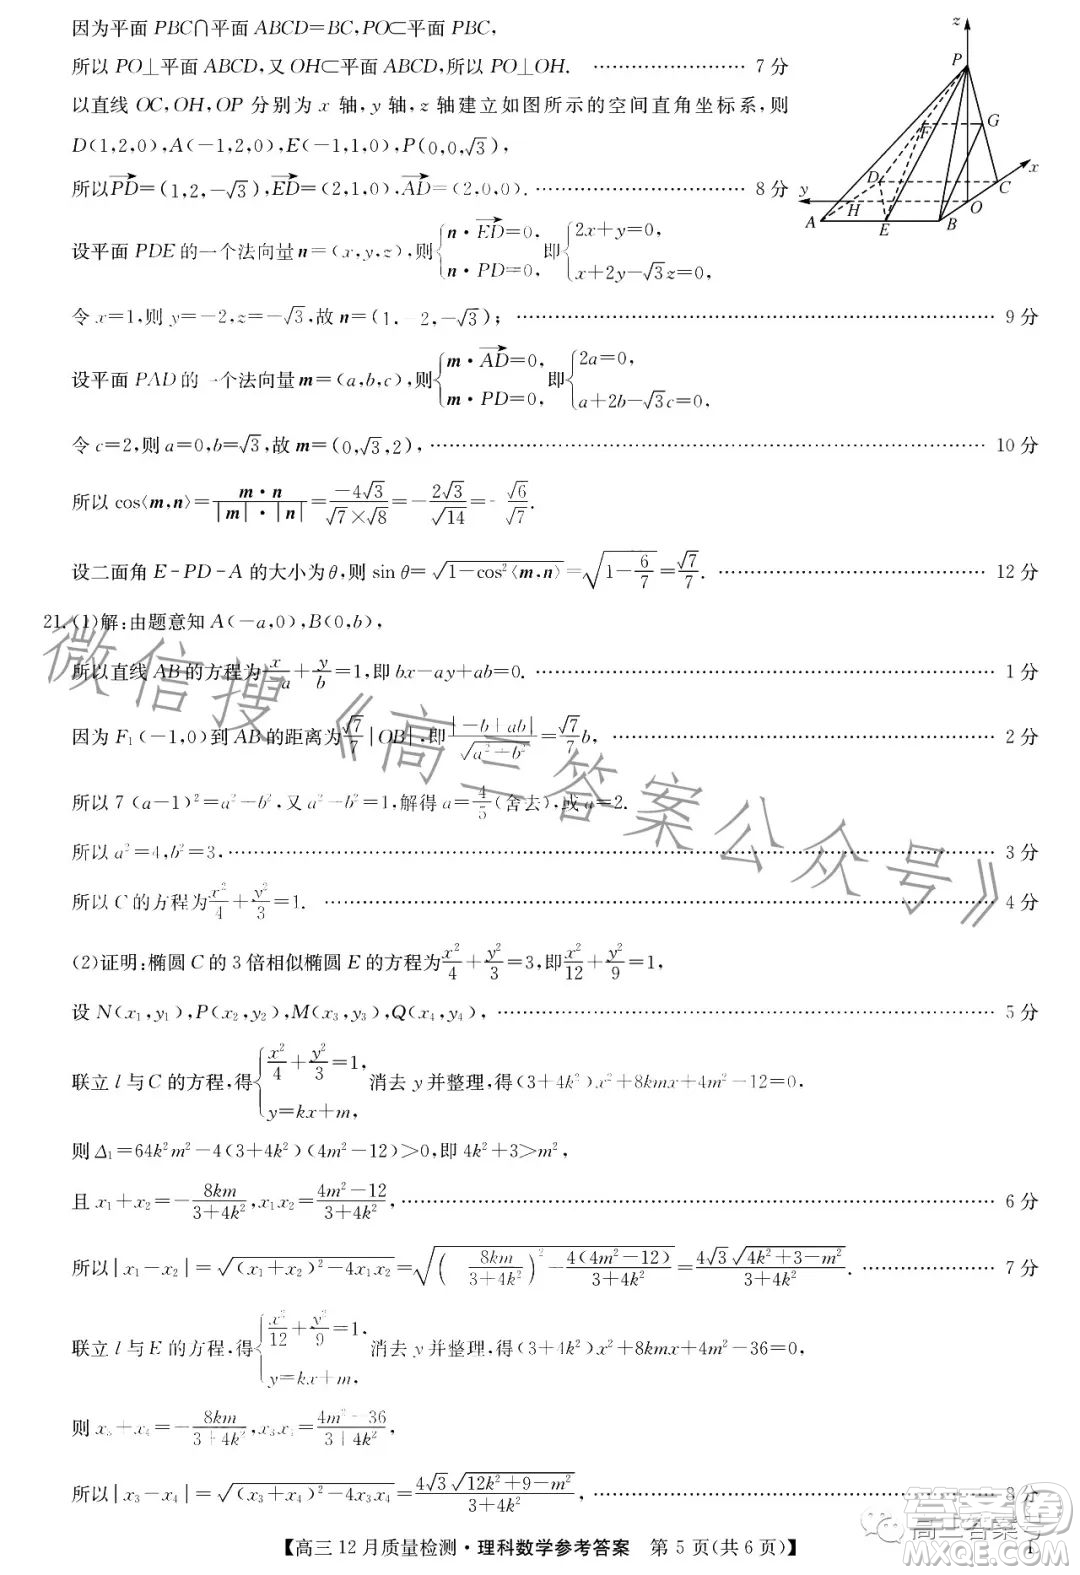 因为平面 PBC∩平面 ABCD=BC,PO⊂平面 PBC,
所以 PO⊥平面 ABCD,又 OH⊂平面 ABCD,所以 PO⊥OH. ……………………… 7 分
以直线 OC,OH,OP 分别为 x 轴,y 轴,z 轴建立如图所示的空间直角坐标系,则
D(1,2,0),A(-1,2,0),E(-1,1,0),P(0,0,√3),
所以PD=(1,2,-√3),ED=(2,1,0),AD=(2,0,0). ……………………… 8 分
z
P
F
G
D
C
x
y
H
O
A
E
B
设平面 PDE 的一个法向量 n=(x,y,z),则{n·ED=0, n·PD=0, 即{2x+y=0, x+2y-√3z=0,
令 x=1,则 y=-2,z=-√3,故 n=(1,-2,-√3); ……………………… 9 分
设平面 PAD 的一个法向量 m=(a,b,c),则{m·AD=0, m·PD=0, 即{2a=0, a+2b-√3c=0,
令 c=2,则 a=0,b=√3,故 m=(0,√3,2), ……………………… 10 分
所以 cos⟨m,n⟩=m·n/|m|·|n|=-4√3/√7×√8=-2√3/√14=-√6/√7.
设二面角 E-PD-A 的大小为θ,则 sin θ=√(1-cos²⟨m,n⟩)=√(1-6/7)=√7/7. ……………………… 12 分
21.(1)解:由题意知 A(-a,0),B(0,b),
所以直线 AB 的方程为x/-a+y/b=1,即 bx-ay+ab=0. ……………………… 1 分
因为 F₁(-1,0)到 AB 的距离为√7/7|OB|,即|-b+ab|/√(a²+b²)=√7/7b, ……………………… 2 分
所以 7(a-1)²=a²+b²,又 a²-b²=1,解得 a=4/5(舍去),或 a=2.
所以 a²=4,b²=3, ……………………… 3 分
所以 C 的方程为x²/4+y²/3=1. ……………………… 4 分
(2)证明:椭圆 C 的 3 倍相似椭圆 E 的方程为x²/4+y²/3=3,即x²/12+y²/9=1,
设 N(x₁,y₁),P(x₂,y₂),M(x₃,y₃),Q(x₄,y₄), ……………………… 5 分
联立 l 与C 的方程,得{x²/4+y²/3=1, y=kx+m, 消去 y 并整理,得(3+4k²)x²+8kmx+4m²-12=0,
则 Δ₁=64k²m²-4(3+4k²)(4m²-12)>0,即 4k²+3>m²,
且 x₁+x₂=-8km/3+4k²,x₁x₂=4m²-12/3+4k², ……………………… 6 分
所以|x₁-x₂|=√((x₁+x₂)²-4x₁x₂)=√((-8km/3+4k²)²-4(4m²-12)/3+4k²)=4√3√(4k²+3-m²)/3+4k². ……………………… 7 分
联立 l 与E 的方程,得{x²/12+y²/9=1, y=kx+m, 消去 y 并整理,得(3+4k²)x²+8kmx+4m²-36=0,
则 x₃+x₄=-8km/3+4k²,x₃x₄=4m²-36/3+4k²,
所以|x₃-x₄|=√((x₃+x₄)²-4x₃x₄)=4√3√(12k²+9-m²)/3+4k². ……………………… 8 分
【高三 12 月质量检测·理科数学参考答案 第 5 页(共 6 页)】
微信搜《高三答案公众号》
高三答案号
答案圈
MXQE.COM